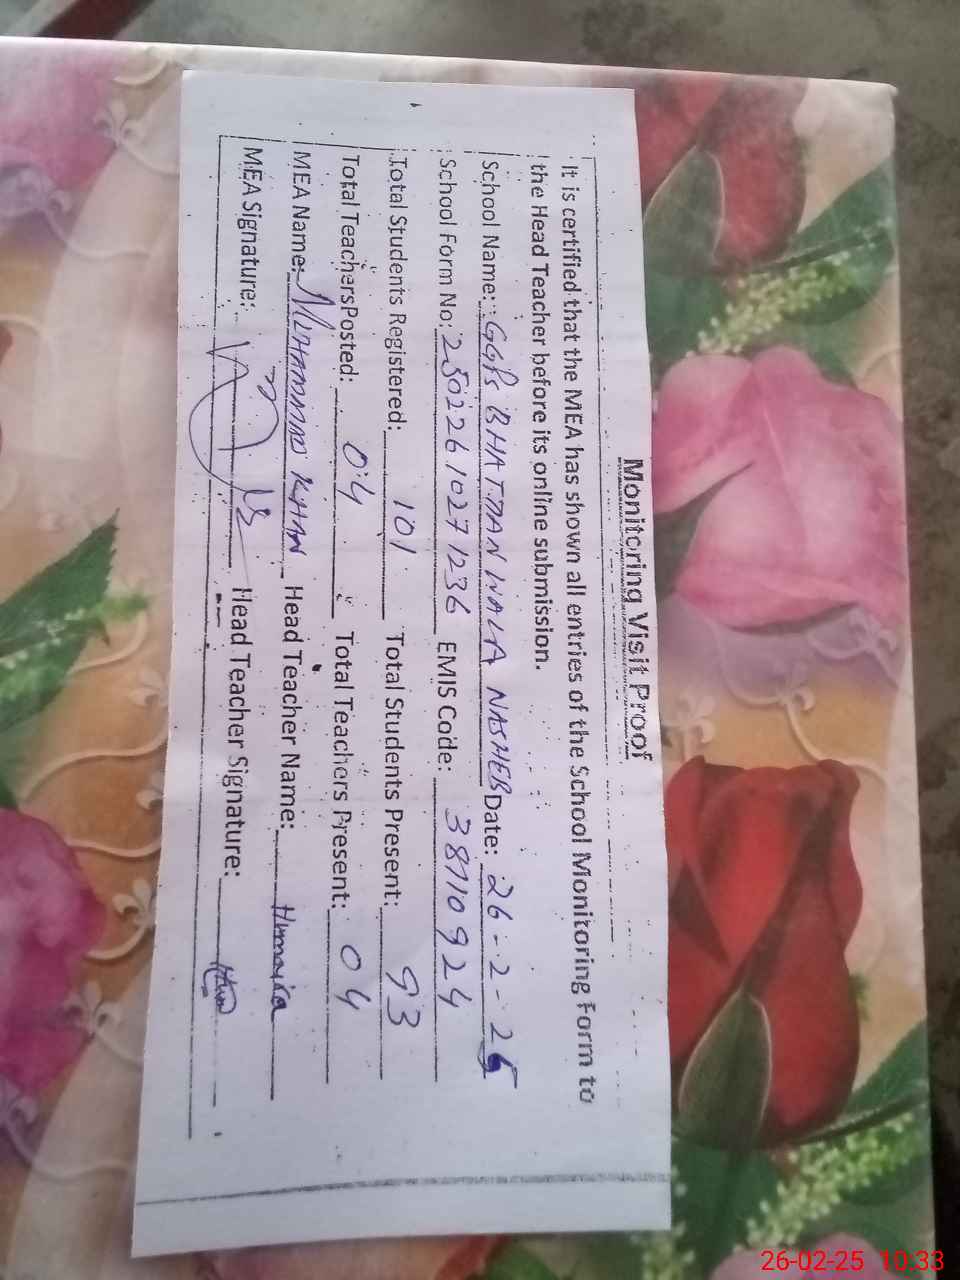 Monitoring Visit Proof
It is certified that the MEA has shown all entries of the School Monitoring Form to
the Head Teacher before its online submission.
School Name: GGPS BHATTAN WALA NASHEB Date: 26-2-25
School Form No: 25022610271236 EMIS Code: 38110924
Total Students Registered: 101 Total Students Present: 93
Total Teachers Posted: 04 Total Teachers Present: 04
MEA Name: MUHAMMAD KHAN Head Teacher Name: Humaira
MEA Signature: Head Teacher Signature:
26-02-25 10:33